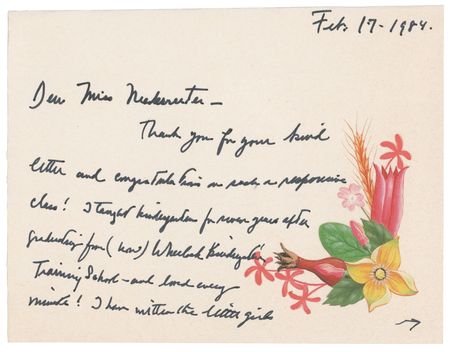 Feb. 17-1984.
Dear Miss
Thank you for your kind
letter and congratulations on such a responsive
class! I taught kindergarten for seven years after
graduating from (now) Wheelock Kindergarten
Training School - and loved every
minute! I have written the little girls